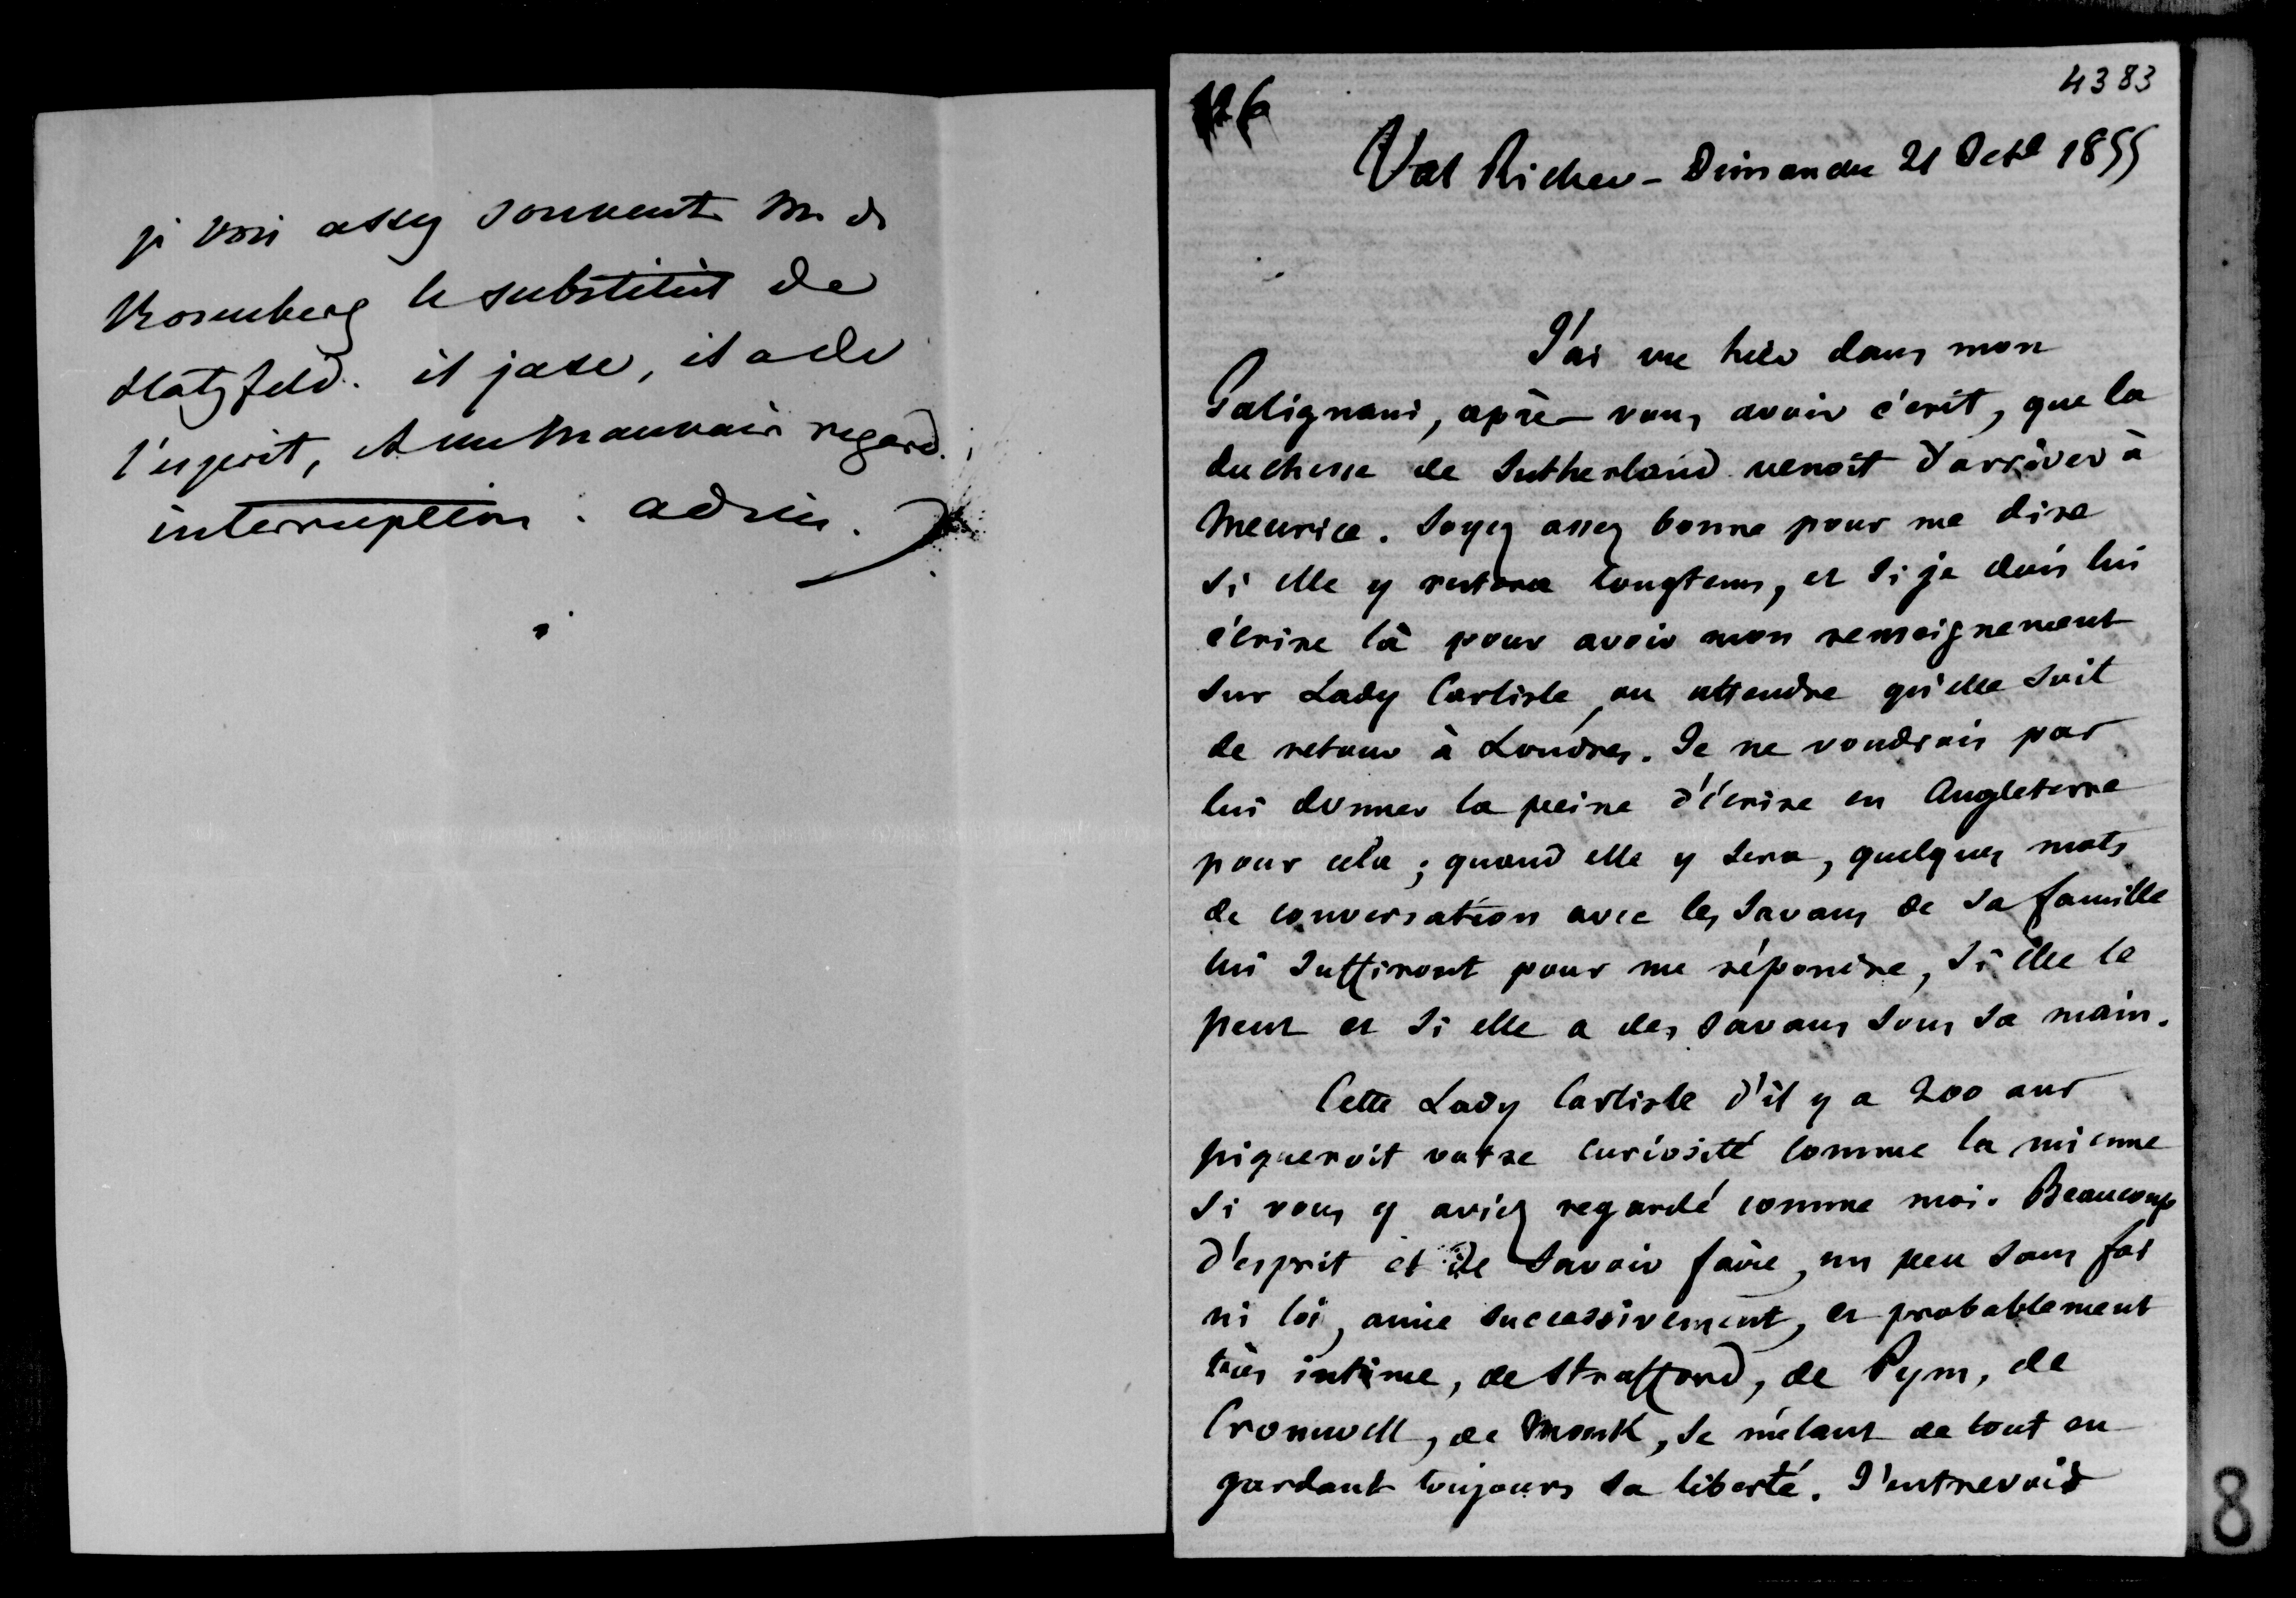 je vois assez souvent M. de
Rosenberg le substitut de
Hatzfeld. il jase, il a de
l'esprit, & un mauvais regard.
interruption. adieu.
4383
126
Val Richer - Dimanche 21 Octe 1855
J'ai vu hier dans mon
Galignani, après vous avoir écrit, que la
duchesse de Sutherland venoit d'arriver à
Meurice. Soyez assez bonne pour me dire
si elle y restera longtems, et si je dois lui
écrire là pour avoir mon renseignement
sur Lady Carlisle, ou attendre qu'elle soit
de retour à Londres. Je ne voudrois pas
lui donner la peine d'écrire en Angleterre
pour cela ; quand elle y sera, quelques mots
de conversation avec les savans de sa famille
lui suffiront pour me répondre, si elle le
peut et si elle a des savans sous sa main.
Cette Lady Carlisle d'il y a 200 ans
piqueroit votre curiosité comme la mienne
si vous y aviez regardé comme moi. Beaucoup
d'esprit et de savoir faire, un peu sans foi
ni loi, amie successivement, et probablement
très intime, de Strafford, de Pym, de
Cromwell, de Monk, se mêlant de tout en
gardant toujours sa liberté. J'entrevois
8